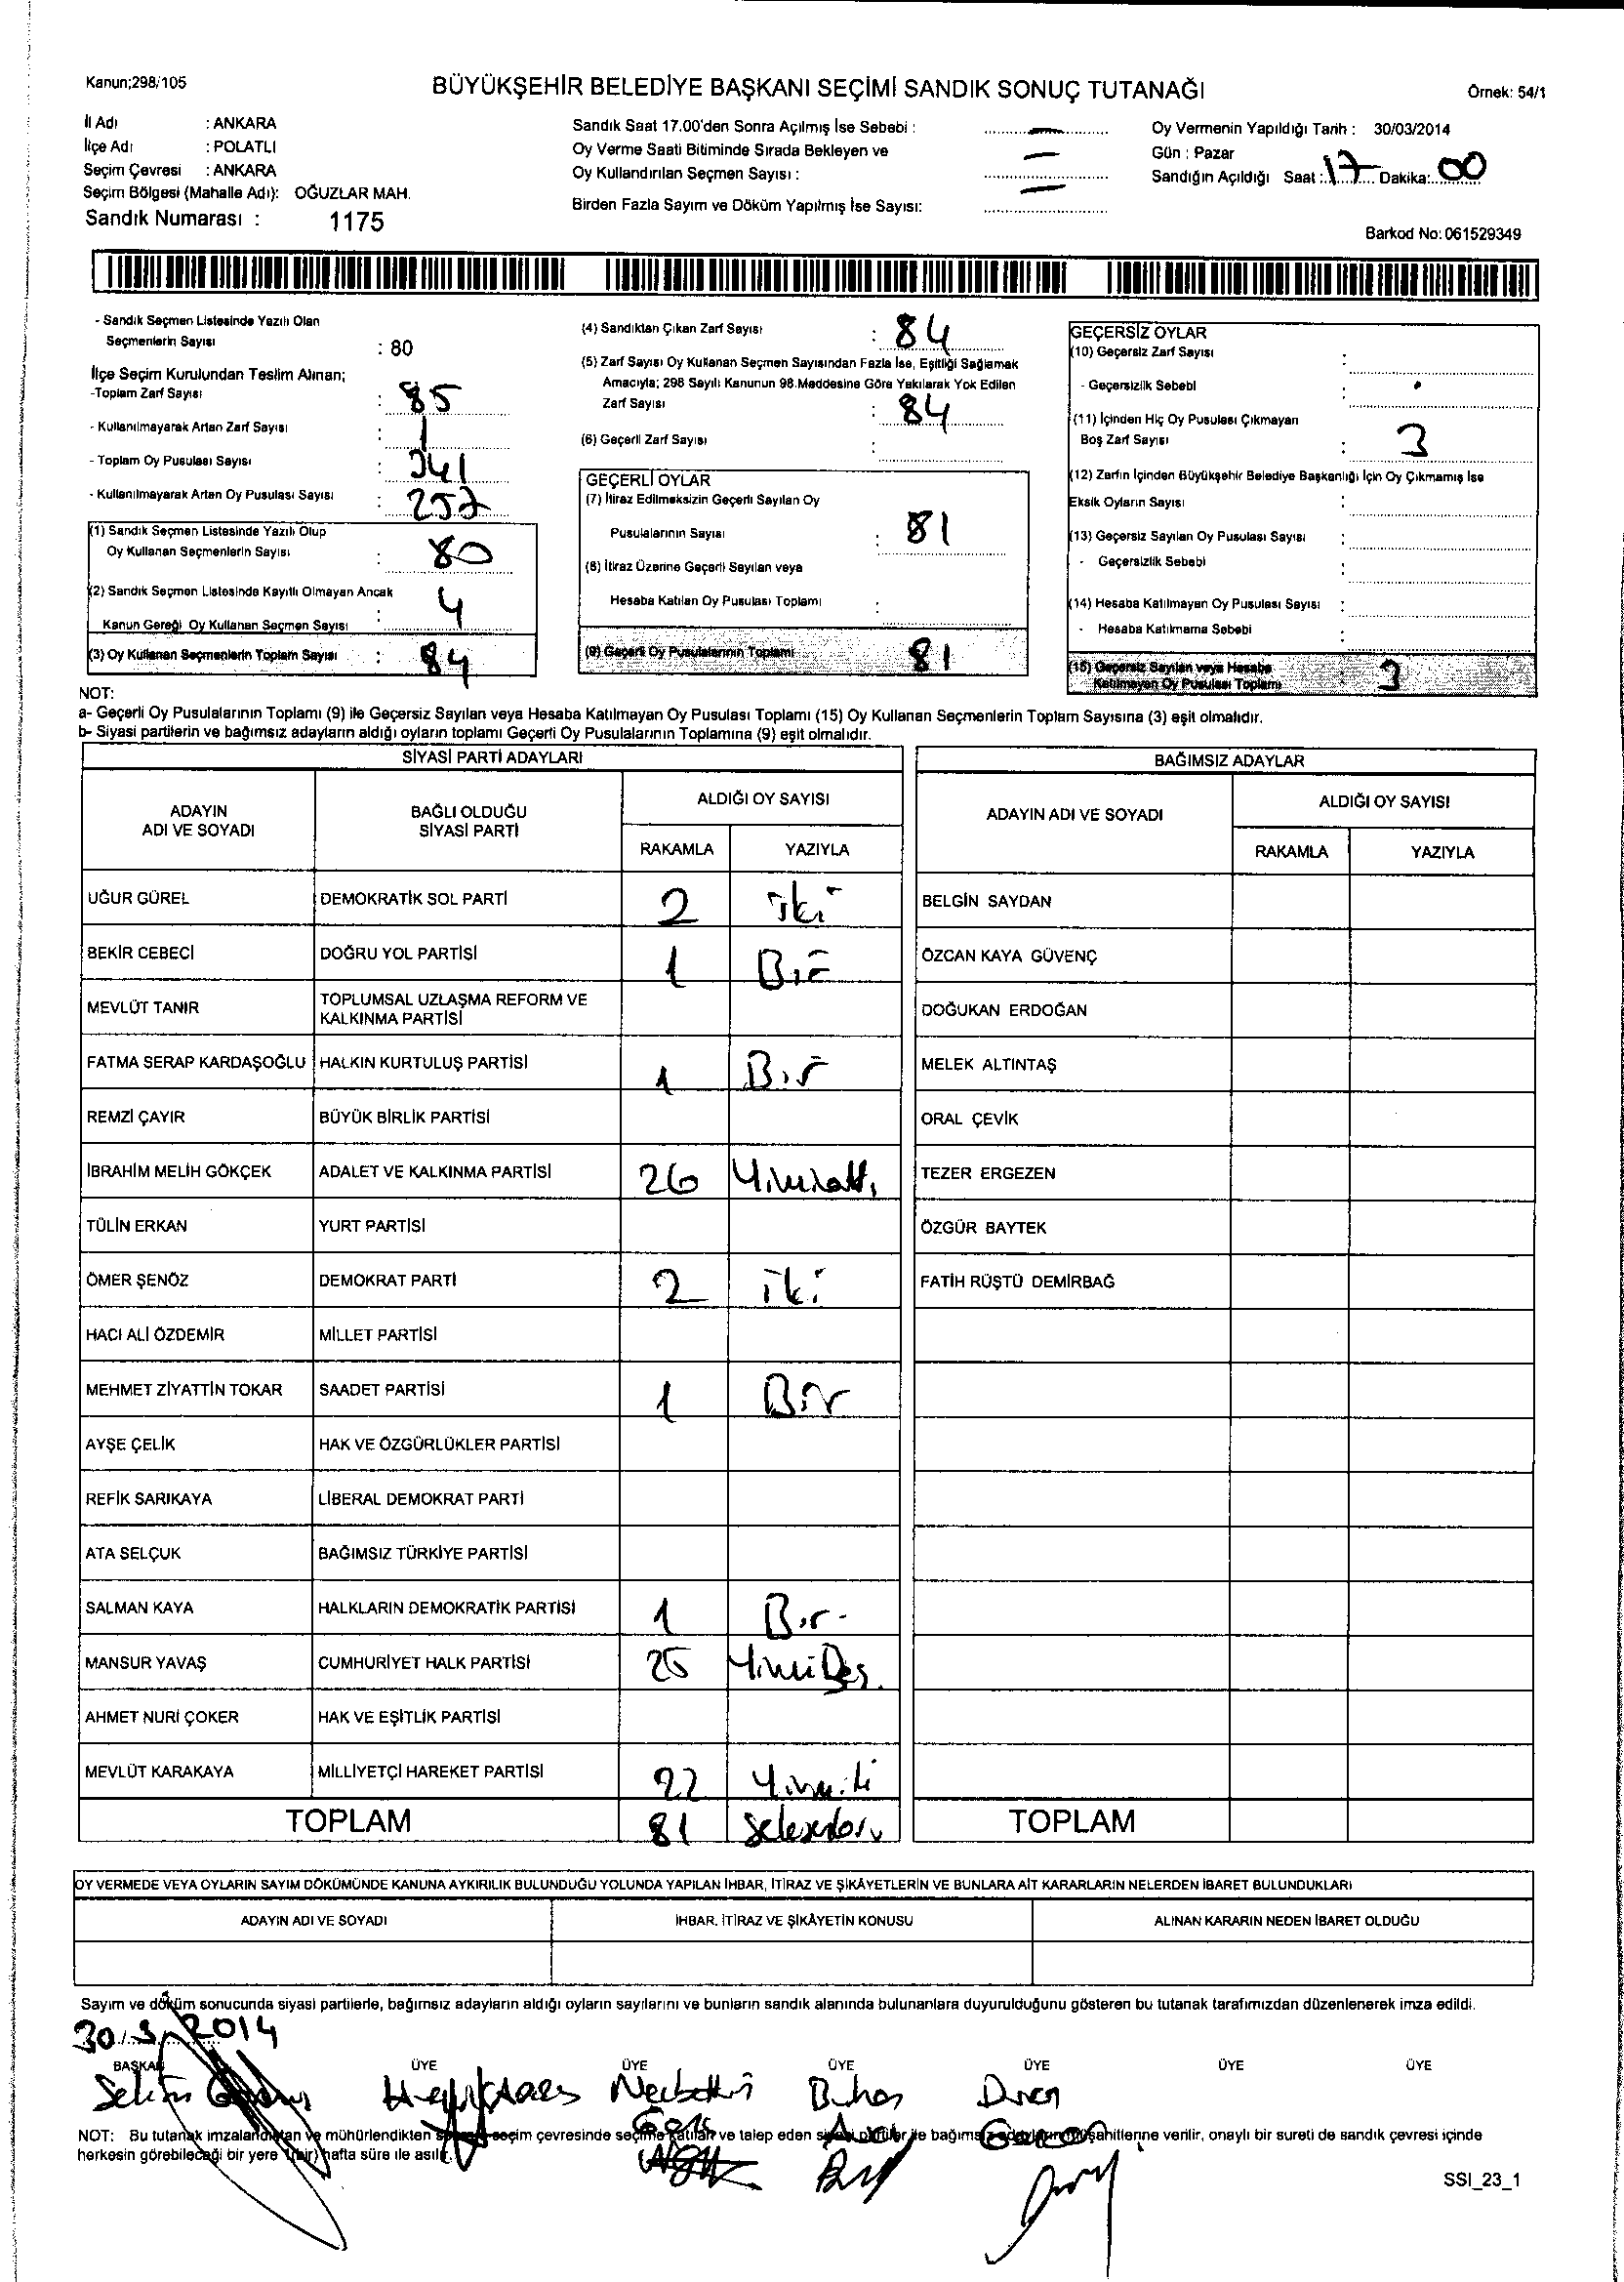 Kanun;298/105
BÜYÜKŞEHİR BELEDİYE BAŞKANI SEÇİMİ SANDIK SONUÇ TUTANAĞI
Örnek: 54/1
İl Adı : ANKARA
İlçe Adı : POLATLI
Seçim Çevresi : ANKARA
Seçim Bölgesi (Mahalle Adı): OĞUZLAR MAH.
Sandık Numarası : 1175
Sandık Saat 17.00'den Sonra Açılmış İse Sebebi : —
Oy Verme Saati Bitiminde Sırada Bekleyen ve
Oy Kullandırılan Seçmen Sayısı : —
Birden Fazla Sayım ve Döküm Yapılmış İse Sayısı: —
Oy Vermenin Yapıldığı Tarih : 30/03/2014
Gün : Pazar
Sandığın Açıldığı Saat : 17 Dakika: 00
Barkod No: 061529349
- Sandık Seçmen Listesinde Yazılı Olan
Seçmenlerin Sayısı : 80
İlçe Seçim Kurulundan Teslim Alınan;
-Toplam Zarf Sayısı : 85
- Kullanılmayarak Artan Zarf Sayısı : 1
- Toplam Oy Pusulası Sayısı : 341
- Kullanılmayarak Artan Oy Pusulası Sayısı : 257
(1) Sandık Seçmen Listesinde Yazılı Olup
Oy Kullanan Seçmenlerin Sayısı : 80
(2) Sandık Seçmen Listesinde Kayıtlı Olmayan Ancak
Kanun Gereği Oy Kullanan Seçmen Sayısı : 4
(3) Oy Kullanan Seçmenlerin Toplam Sayısı : 84
(4) Sandıktan Çıkan Zarf Sayısı : 84
(5) Zarf Sayısı Oy Kullanan Seçmen Sayısından Fazla İse, Eşitliği Sağlamak
Amacıyla; 298 Sayılı Kanunun 98.Maddesine Göre Yakılarak Yok Edilen
Zarf Sayısı : 84
(6) Geçerli Zarf Sayısı :
GEÇERLİ OYLAR
(7) İtiraz Edilmeksizin Geçerli Sayılan Oy
Pusulalarının Sayısı : 81
(8) İtiraz Üzerine Geçerli Sayılan veya
Hesaba Katılan Oy Pusulası Toplamı :
(9) Geçerli Oy Pusulalarının Toplamı 81
GEÇERSİZ OYLAR
(10) Geçersiz Zarf Sayısı :
- Geçersizlik Sebebi :
(11) İçinden Hiç Oy Pusulası Çıkmayan
Boş Zarf Sayısı : 3
(12) Zarfın İçinden Büyükşehir Belediye Başkanlığı İçin Oy Çıkmamış İse
Eksik Oyların Sayısı :
(13) Geçersiz Sayılan Oy Pusulası Sayısı :
- Geçersizlik Sebebi :
(14) Hesaba Katılmayan Oy Pusulası Sayısı :
- Hesaba Katılmama Sebebi :
(15) Geçersiz Sayılan veya Hesaba
Katılmayan Oy Pusulası Toplamı 3
NOT:
a- Geçerli Oy Pusulalarının Toplamı (9) ile Geçersiz Sayılan veya Hesaba Katılmayan Oy Pusulası Toplamı (15) Oy Kullanan Seçmenlerin Toplam Sayısına (3) eşit olmalıdır.
b- Siyasi partilerin ve bağımsız adayların aldığı oyların toplamı Geçerli Oy Pusulalarının Toplamına (9) eşit olmalıdır.
SİYASİ PARTİ ADAYLARI
ADAYIN ADI VE SOYADI
BAĞLI OLDUĞU SİYASİ PARTİ
ALDIĞI OY SAYISI
RAKAMLA YAZIYLA
UĞUR GÜREL DEMOKRATİK SOL PARTİ 2 iki
BEKİR CEBECİ DOĞRU YOL PARTİSİ 1 Bir
MEVLÜT TANIR TOPLUMSAL UZLAŞMA REFORM VE KALKINMA PARTİSİ
FATMA SERAP KARDAŞOĞLU HALKIN KURTULUŞ PARTİSİ 1 Bir
REMZİ ÇAYIR BÜYÜK BİRLİK PARTİSİ
İBRAHİM MELİH GÖKÇEK ADALET VE KALKINMA PARTİSİ 26
TÜLİN ERKAN YURT PARTİSİ
ÖMER ŞENÖZ DEMOKRAT PARTİ 2 iki
HACI ALİ ÖZDEMİR MİLLET PARTİSİ
MEHMET ZİYATTİN TOKAR SAADET PARTİSİ 1 Bir
AYŞE ÇELİK HAK VE ÖZGÜRLÜKLER PARTİSİ
REFİK SARIKAYA LİBERAL DEMOKRAT PARTİ
ATA SELÇUK BAĞIMSIZ TÜRKİYE PARTİSİ
SALMAN KAYA HALKLARIN DEMOKRATİK PARTİSİ 1 Bir
MANSUR YAVAŞ CUMHURİYET HALK PARTİSİ 25
AHMET NURİ ÇOKER HAK VE EŞİTLİK PARTİSİ
MEVLÜT KARAKAYA MİLLİYETÇİ HAREKET PARTİSİ 22
TOPLAM 81
BAĞIMSIZ ADAYLAR
ADAYIN ADI VE SOYADI
ALDIĞI OY SAYISI
RAKAMLA YAZIYLA
BELGİN SAYDAN
ÖZCAN KAYA GÜVENÇ
DOĞUKAN ERDOĞAN
MELEK ALTINTAŞ
ORAL ÇEVİK
TEZER ERGEZEN
ÖZGÜR BAYTEK
FATİH RÜŞTÜ DEMİRBAĞ
TOPLAM
OY VERMEDE VEYA OYLARIN SAYIM DÖKÜMÜNDE KANUNA AYKIRILIK BULUNDUĞU YOLUNDA YAPILAN İHBAR, İTİRAZ VE ŞİKÂYETLERİN VE BUNLARA AİT KARARLARIN NELERDEN İBARET BULUNDUKLARI
ADAYIN ADI VE SOYADI
İHBAR, İTİRAZ VE ŞİKÂYETİN KONUSU
ALINAN KARARIN NEDEN İBARET OLDUĞU
Sayım ve döküm sonucunda siyasi partilerle, bağımsız adayların aldığı oyların sayılarını ve bunların sandık alanında bulunanlara duyurulduğunu gösteren bu tutanak tarafımızdan düzenlenerek imza edildi.
30/3/2014
BAŞKAN ÜYE ÜYE ÜYE ÜYE ÜYE ÜYE
NOT: Bu tutanak imzalandıktan ve mühürlendikten seçim çevresinde seçime katılan ve talep eden siyasi partiler ile bağımsız adayların müşahitlerine verilir, onaylı bir sureti de sandık çevresi içinde
herkesin görebileceği bir yere (bir) hafta süre ile asılır.
SSI_23_1